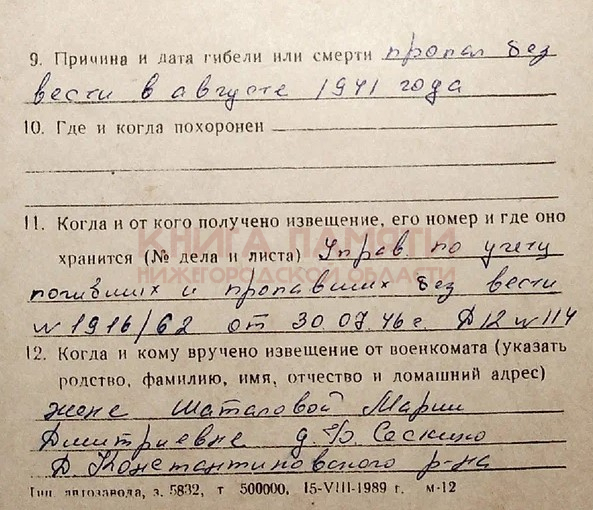 9. Причина и дата гибели или смерти пропал без
вести в августе 1941 года
10. Где и когда похоронен
11. Когда и от кого получено извещение, его номер и где оно
КНИГА ПАМЯТИ
хранится (№ дела и листа) Управ. по учету
НИЖЕГОРОДСКОЙ ОБЛАСТИ
погибших и пропавших без вести
№ 1916/62 от 30.07.46 г. Д12 № 114
12. Когда и кому вручено извещение от военкомата (указать
родство, фамилию, имя, отчество и домашний адрес)
жене Шаталовой Марии
Дмитриевне д. Сескино
Д Константиновского р-на
Тип. автозавода, з. 5832, т 500000, 15-VIII-1989 г. м-12